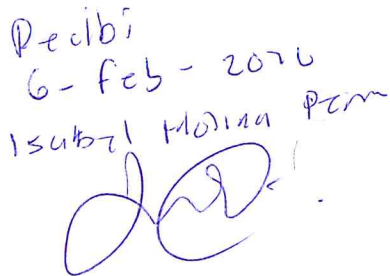 Recibi
6-Feb-2020
Isabel Molina